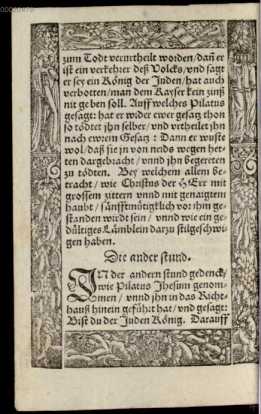 zum Todt verurtheilt worden/dañ er
ist ein verkehrer deß Volcks/vnd sagt
er sey ein König der Juden/hat auch
verbotten/man dem Kayser kein zinß
nit geben soll. Auff welches Pilatus
gesagt: hat er wider ewer gesatz thon
so tödtet jhn selber/vnd vrtheilet jhn
nach ewrem Gesatz: Dann er wuste
wol/daß sie jn von neids wegen het-
ten dargebracht/vnnd jhn begereten
zu tödten. Bey welchem allem be-
tracht/wie Christus der HErr mit
grossem zittern vnnd mit genaigtem
haubt/sänfftmütigklich vor jhm ge-
standen wirdt sein/vnnd wie ein ge-
dültiges Lämblein darzu stilgeschwi-
gen haben.
Die ander stund.
IN der andern stund gedenck/
wie Pilatus Jhesum genom-
men/vnnd jhn in das Richt-
hauß hinein geführt hat/vnd gesagt:
Bist du der Juden König. Darauff